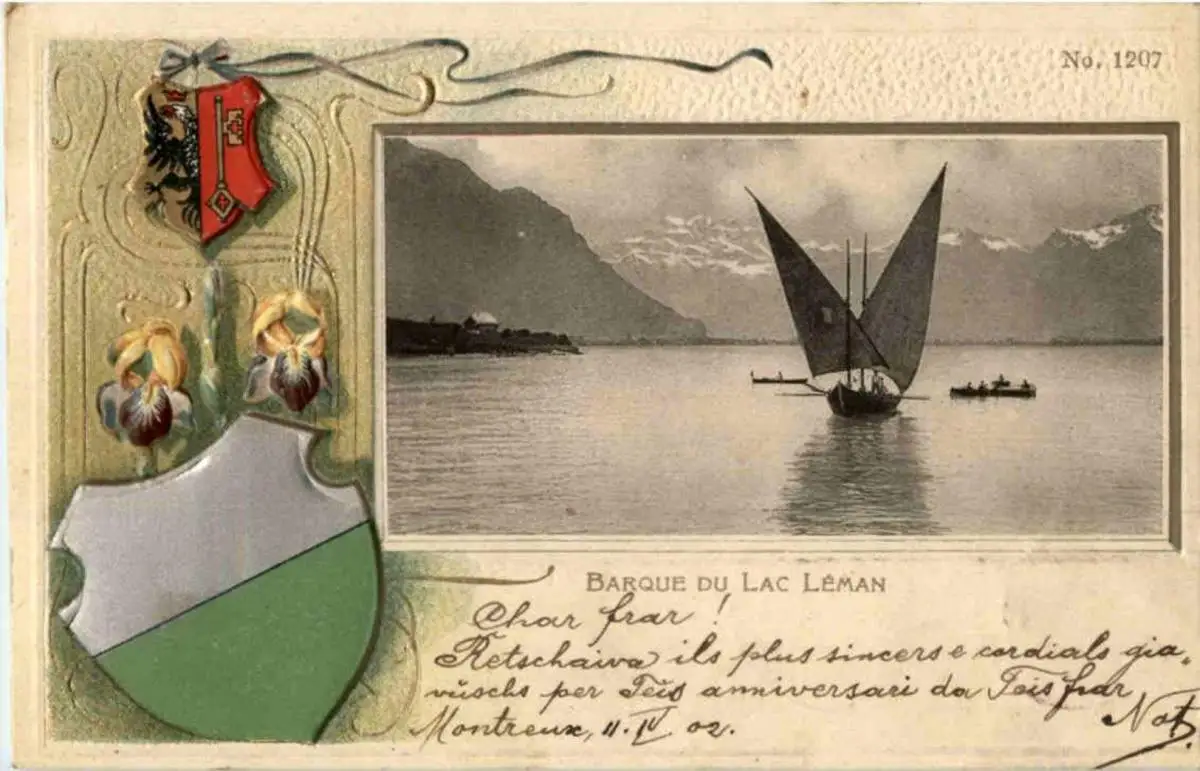 No. 1207
BARQUE DU LAC LÉMAN
Char frar!
Retschaiva ils plus sincers e cordials gia,
vüschs per Teis anniversari da Teis frar
Not.
Montreux, 11. IV. 02.